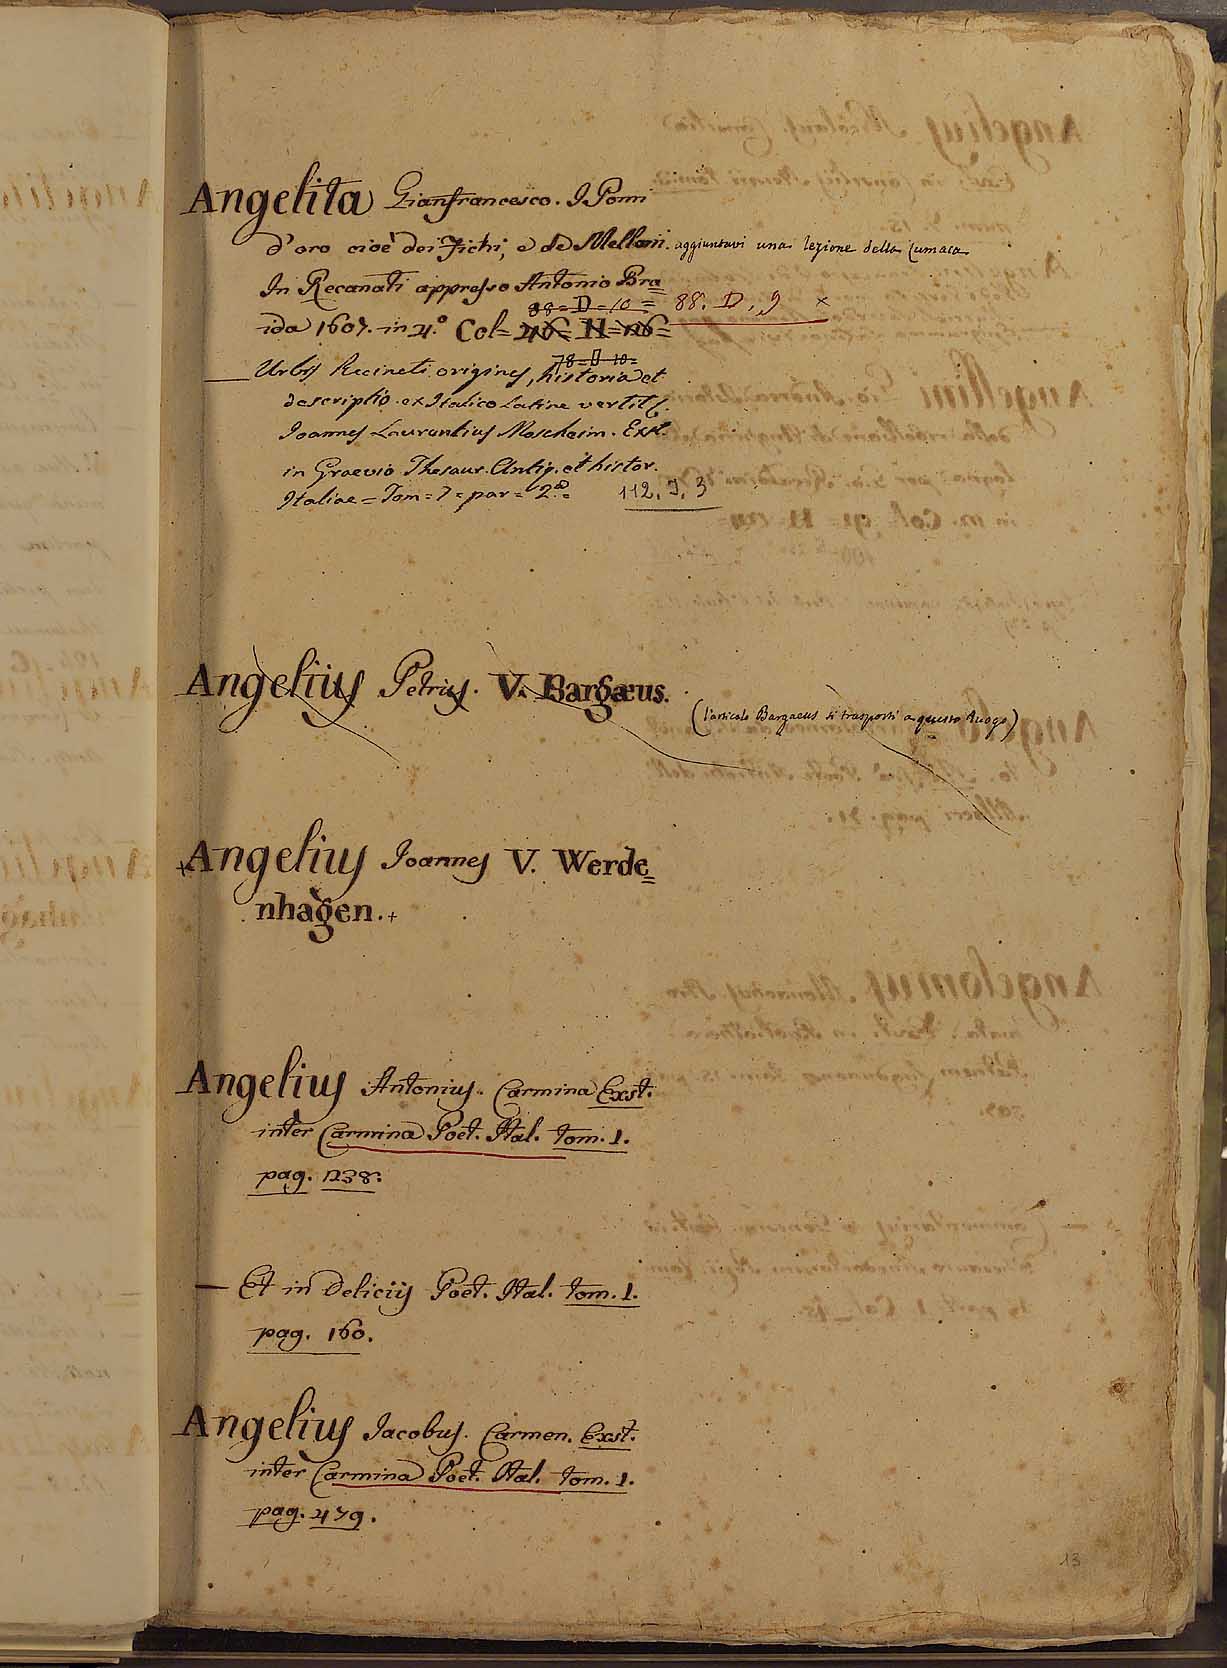 Angelita Gianfrancesco. I Pomi
d'oro cioè dei Fichi, e de Melloni. aggiuntavi una lezione della Lumaca
In Recanati appresso Antonio Bra=
88=D=10= 88. D. 9 ×
ida 1607. in 4.° Col= 46= H=126=
78=D=10=
— Urbis Recineti origines, historia et
descriptio. ex Italico Latine vertit
Joannes Laurentius Moscheim. Exst.
in Graevio Thesaur. Antiq. et histor.
Italiae = Tom = 7 = par = 2.ª = 112. J. 3
Angelius Petrus. V. Bargæus.
(l'articolo Bargaeus si trasporti a questo luogo)
+Angelius Joannes V. Werde=
nhagen.+
Angelius Antonius. Carmina Exst.
inter Carmina Poet. Ital. tom. 1.
pag. 1238.
— Et in Deliciis Poet. Ital. tom. 1.
pag. 160.
Angelius Jacobus. Carmen. Exst.
inter Carmina Poet. Ital. tom. 1.
pag. 479.
13